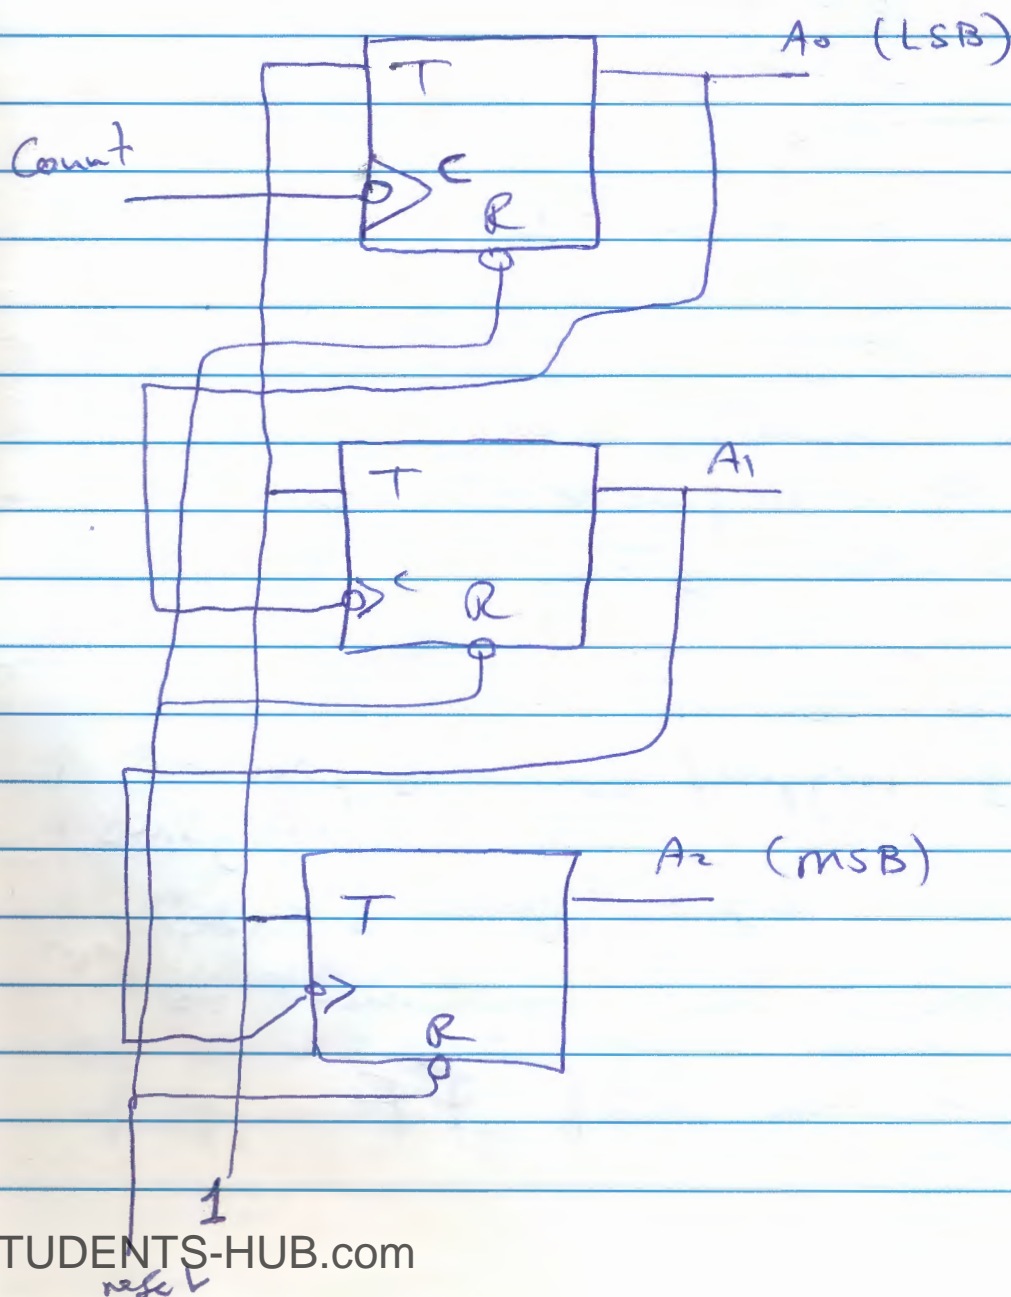 A0 (LSB)
T
Count
C
R
A1
T
C
R
A2 (MSB)
T
R
1
TUDENTS-HUB.com
reset